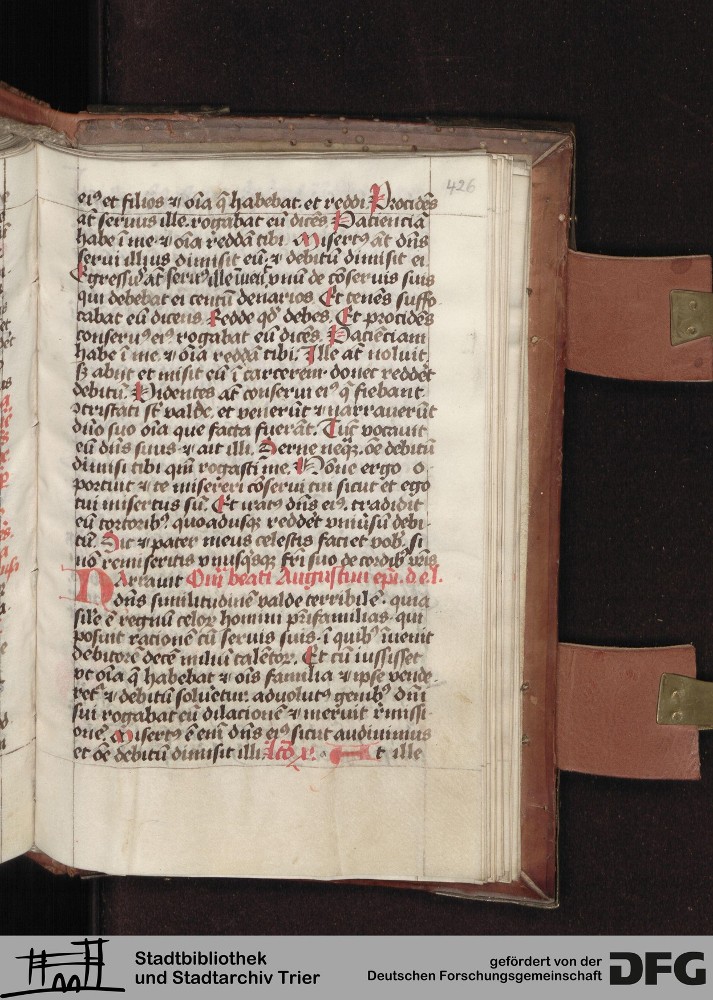 426
eiꝰ et filios ⁊ oīa q̄ habebat. et reddi. Procidēs
at̄ seruus ille. rogabat eū dicēs Pacienciā
habe ī me. ⁊ oīa reddā tibi. Misertꝰ at̄ dn̄s
serui illius dimisit eū. ⁊ debitū dimisit ei
Egressus at̄ seruꝰ ille inuēit vnū de cōseruis suis
qui debebat ei centū denarios. Et tenēs suffo
cabat eū dicens. Redde qd̄ debes. Et procidēs
conseruꝰ eiꝰ rogabat eū dicēs. Pacienciam
habe ī me. ⁊ oīa reddā tibi. Ille at̄ noluit.
sꝫ abijt et misit eū ī carcerem donec reddēt
debitū. Videntes at̄ conserui eiꝰ q̄ fiebant.
ꝯtristati st̄ valde. et venerūt ⁊ narrauerūt
dn̄o suo oīa que facta fuerāt. Tūc vocauit
eū dn̄s suus. ⁊ ait illi. Serue neqꝫ. oē debitū
dimisi tibi qm̄ rogasti me. Nōne ergo o-
portuit ⁊ te misereri cōserui tui sicut et ego
tui misertus sū. Et iratꝰ dn̄s eiꝰ. tradidit
eū tortoribꝰ quoadusqꝫ reddēt vniūsū debi-
tū. Sic ⁊ pater meus celestis faciet vob̄. si
nō remiseritis vnusqꝰsqꝫ fr̄i suo de cordibꝰ vr̄is
Narrauit Om̄ beati Augustini ep̄i. d. e. l.
dn̄s similitudinē valde terribilē. quia
sil̄e ē regnū celoꝝ homini pr̄ifamilias. qui
posuit racionē cū seruis suis. ī quibꝰ īuenit
debitorē decē miliū talētoꝝ. Et cū iussisset
vt oīa q̄ habebat ⁊ oīs familia ⁊ ipse vende-
ret̄ ⁊ debitū solueretur. aduolutꝰ genibꝰ dn̄i
sui rogabat eū dilacionē ⁊ meruit r̄missi-
onē. Misertꝰ ē eni dn̄s eiꝰ sicut audiuimus
et oē debitū dimisit illi. Et ille
Stadtbibliothek
und Stadtarchiv Trier
gefördert von der
Deutschen Forschungsgemeinschaft
DFG